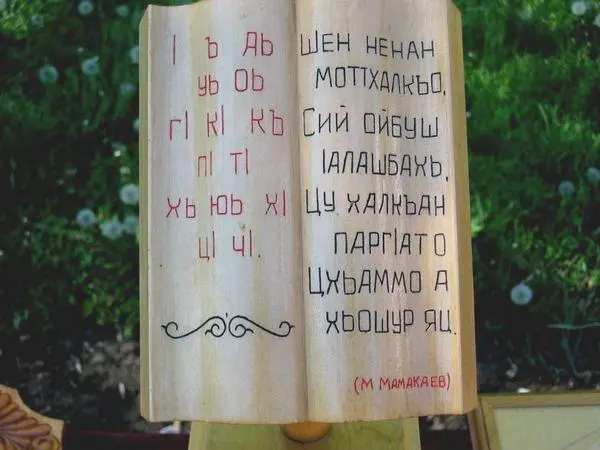 Ӏ Ъ АЬ
УЬ ОЬ
ГӀ КӀ КЪ
ПӀ ТӀ
ХЬ ЮЬ ХӀ
ЦӀ ЧӀ.
ШЕН НЕНАН
МОТТ ХАЛКЪО,
СИЙ ОЙБУШ
ӀАЛАШБАХЬ,
ЦУ ХАЛКЪАН
ПАРГӀАТО
ЦХЬАММО А
ХЬОШУР ЯЦ.
(М МАМАКАЕВ)